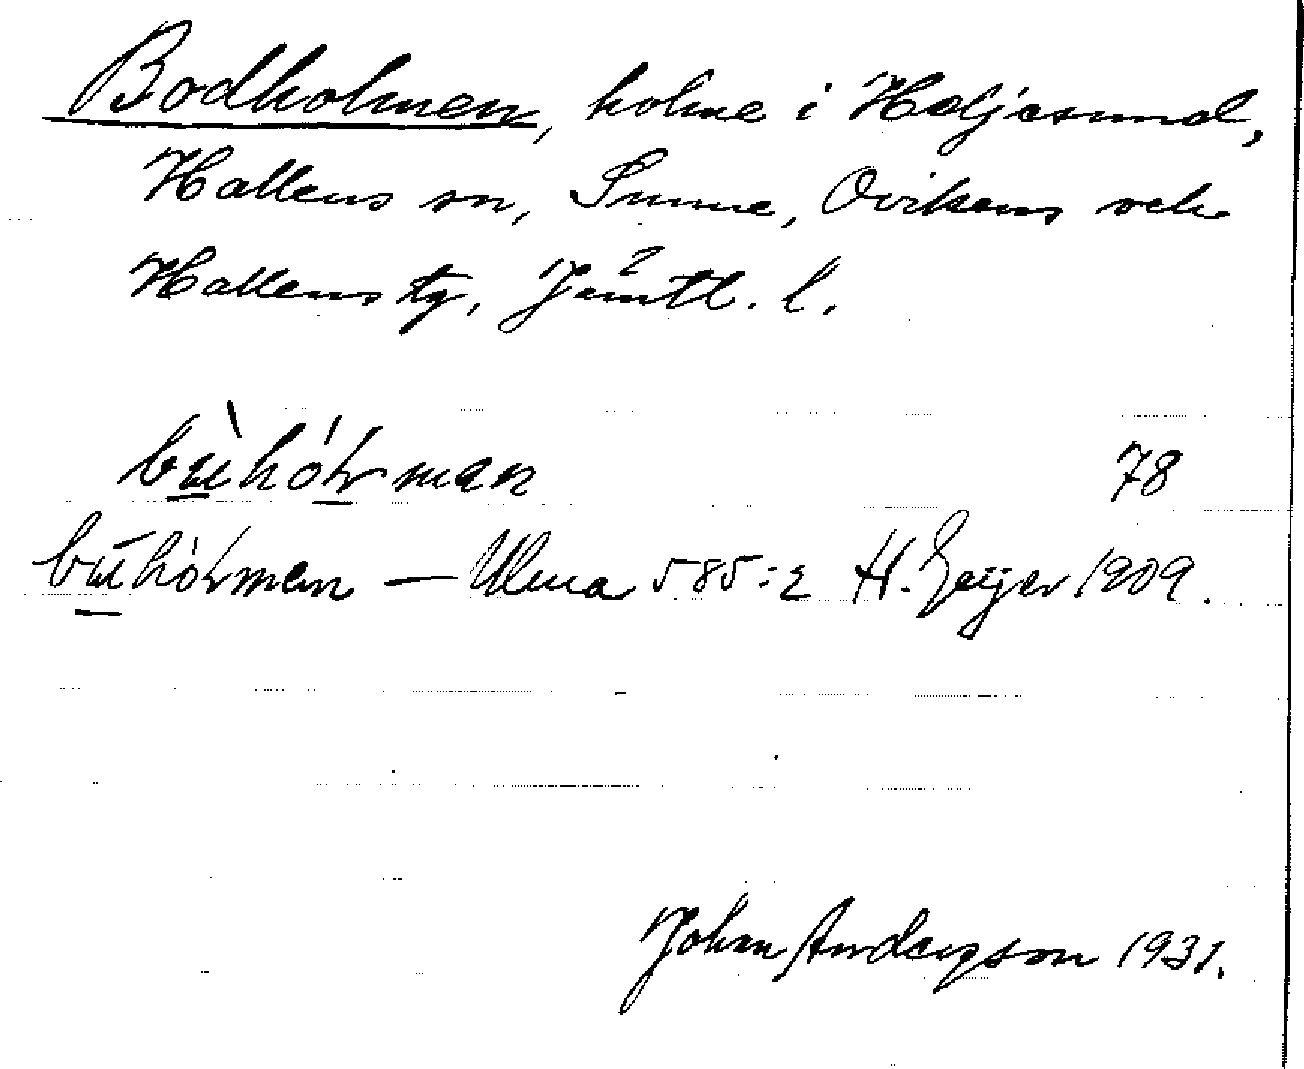 Bodholmen, holme i Haljesund,
Hallens sn, Sunne, Ovikens och
Hallens tg, Jämtl. l.
bùhól̀man 78
būhólman — Ulma 585:2 H. Geijer 1909.
Johan Anderzson 1931.